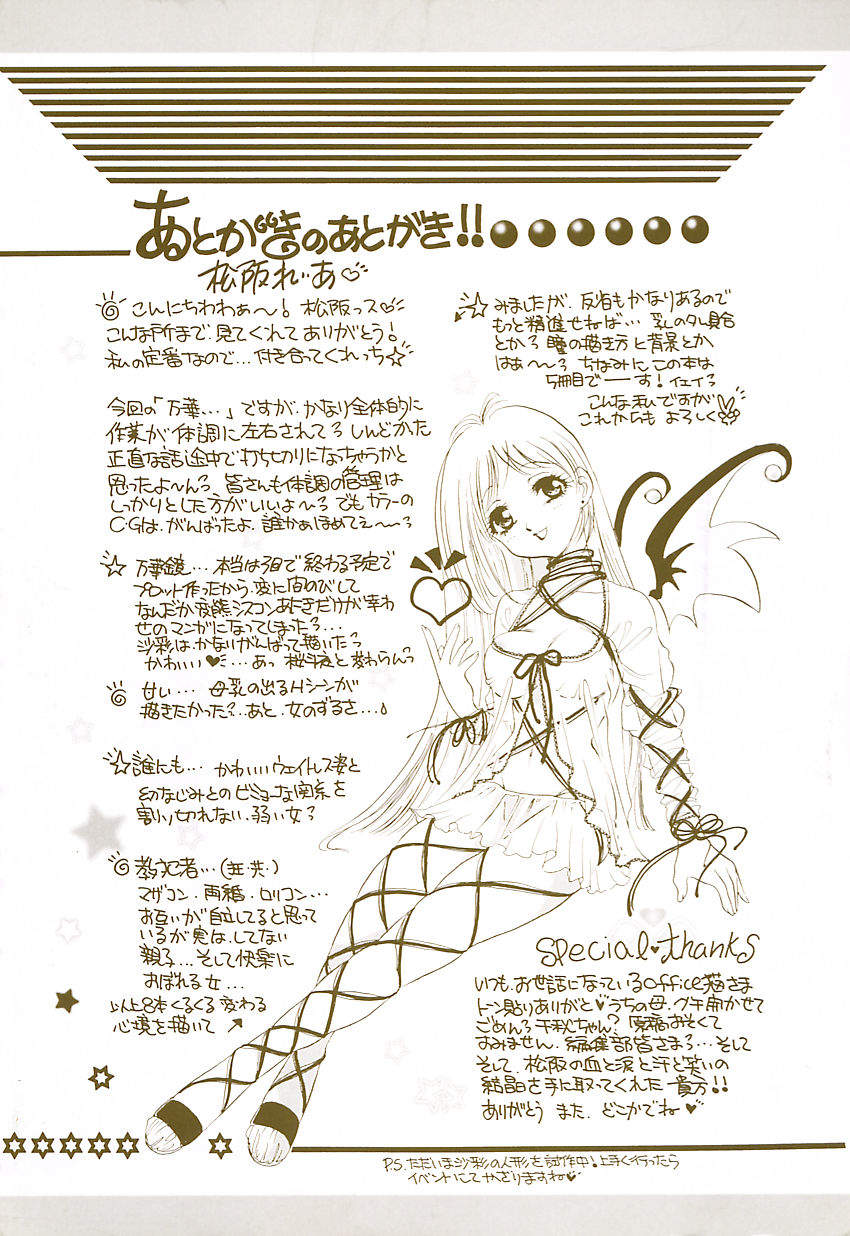 あとがきのあとがき!!
松阪れいあ♡
こんにちわわぁ〜! 松阪っス♡
こんな所まで見てくれてありがとう!
私の定番なので…付き合ってくれっち☆
今回の「万華…」ですが、かなり全体的に
作業が体調に左右されてろしんどかた
正直な話途中で打ち切りになっちゃうかと
思ったよ〜んろ 皆さんも体調の管理は
しっかりとした方がいいよ〜ろ でもカラーの
C・Gは、がんばったよ、誰かぁほめてぇ〜ろ
☆ 万華鏡… 本当は3回で終わる予定で
プロット作ったから、変に間のびして
なんだか変態シスコンあにきだけが幸わ
せのマンガになってしまったろ…
沙彩は、かなりがんばって描いたっ
かわいい♥…あっ 桜斗と変わらんっ
甘い… 母乳の出るHシーンが
描きたかった?…あと、女のずるさ…♪
☆誰にも… かわいいウェイトレス姿と
幼なじみとのビミョーな関系を
割り切れない、弱い女ろ
教犯者…(共・犯・)
マザコン、再婚、ロリコン…
お互いが自立してると思って
いるが実は、してない
親子…そして快楽に
おぼれる女…
以上8本くるくる変わる
心境を描いて ↗
☆みましたが、反省もかなりあるので
もっと精進せねば… 乳のタレ具合
とかろ 瞳の描き方と背景とか
はぁ〜ろ ちなみにこの本は
5冊目でーーす! イェイろ
こんな私ですが
これからも よろしく
special♥thanks
いつも、お世話になっているOffice猫さま
トーン貼りありがと♥うちの母、グチ聞かせて
ごめんろ 千秋ちゃん? 原稿おそくて
すみません、編集部皆さまろ…そして
そして、松阪の血と涙と汗と笑いの
結晶を手に取ってくれた 貴方!!
ありがとう また、どこかでね♥
P.S.ただいま沙彩の人形を試作中! 上手く行ったら
イベントにてかざりますね♥